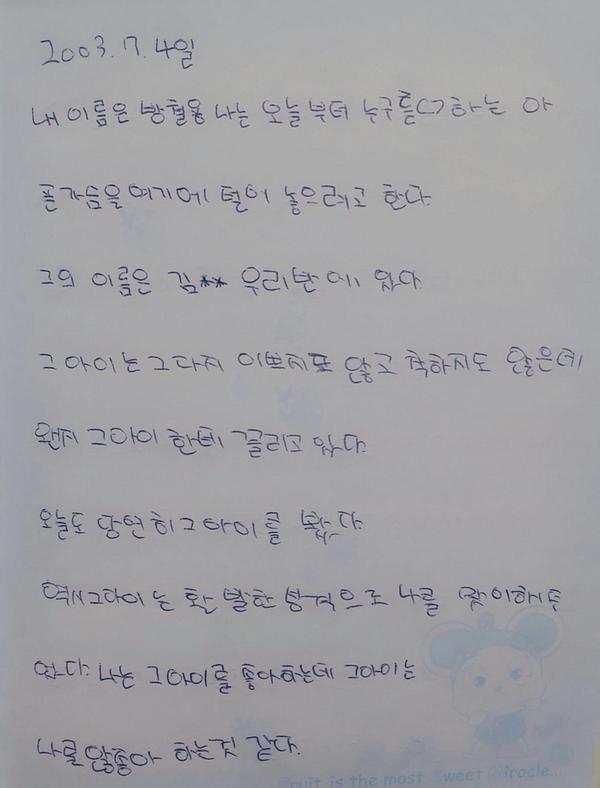 2003.7.4일
내 이름은 방철용 나는 오늘부터 누구를♡하는 아
픈가슴을여기에 털어 놓으려고 한다.
그의 이름은 김** 우리반에 있다.
그 아이는 그다지 이쁘지도 않고 착하지도 않은데
왠지 그아이 한테 끌리고 있다.
오늘도 당연히 그아이를 봤다.
역시그아이는 활발한 성격으로 나를 맞이해주
었다. 나는 그아이를 좋아하는데 그아이는
나를않좋아 하는것 같다.
is the most Sweet Miracle...